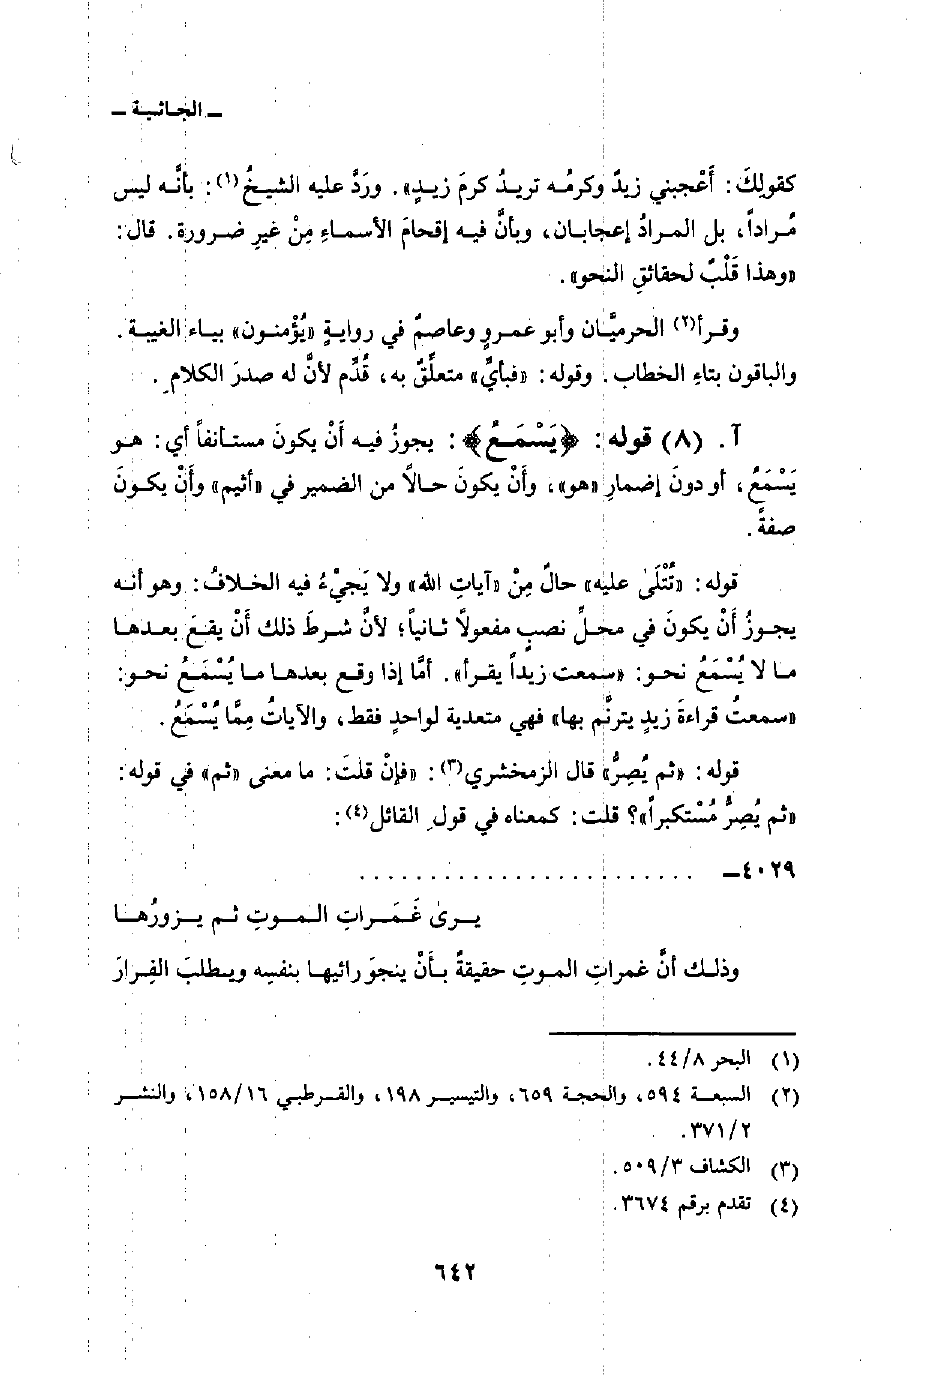 ـ الجاثية ـ
كقولِكَ: أَعْجبني زيدٌ وكرمُه تريدُ كرمَ زيدٍ». ورَدَّ عليه الشيخُ(١): بأنَّه ليس
مُراداً، بل المرادُ إعجابان، وبأنَّ فيه إقحامَ الأسماءِ مِنْ غيرِ ضرورة. قال:
«وهذا قَلْبٌ لحقائقِ النحو».
وقرأ(٢) الحرميَّان وأبو عمروٍ وعاصمٌ في روايةٍ «يُؤْمنون» بياء الغَيبة.
والباقون بتاءِ الخطاب. وقوله: «فبأيِّ» متعلِّقٌ به، قُدِّم لأنَّ له صدرَ الكلامِ.
آ. (٨) قوله: ﴿يَسْمَعُ﴾: يجوزُ فيه أَنْ يكونَ مستأنفاً أي: هو
يَسْمَعُ، أو دونَ إضمارِ «هو»، وأَنْ يكونَ حالاً من الضمير في «أثيم» وأَنْ يكونَ
صفةً.
قوله: «تُتْلَىٰ عليه» حالٌ مِنْ «آياتِ الله» ولا يَجيْءُ فيه الخلافُ: وهو أنه
يجوزُ أَنْ يكونَ في محلِّ نصبٍ مفعولاً ثانياً؛ لأنَّ شرطَ ذلك أَنْ يقعَ بعدها
ما لا يُسْمَعُ نحو: «سمعت زيداً يقرأ». أمَّا إذا وقع بعدها ما يُسْمَعُ نحو:
«سمعتُ قراءةَ زيدٍ يترنَّم بها» فهي متعدية لواحدٍ فقط، والآياتُ مِمَّا يُسْمَعُ.
قوله: «ثم يُصِرُّ» قال الزمخشري(٣): «فإنْ قلتَ: ما معنى «ثم» في قوله:
«ثم يُصِرُّ مُسْتكبراً»؟ قلت: كمعناه في قولِ القائل(٤):
٤٠٢٩ـ . . . . . . . . . . . . . . . . . . . . . . . .
يرىٰ غَمَراتِ الموتِ ثم يزورُها
وذلك أنَّ غمراتِ الموتِ حقيقةٌ بأَنْ ينجوَ رائيها بنفسِه ويطلبَ الفِرارَ
(١) البحر ٤٤/٨.
(٢) السبعة ٥٩٤، والحجة ٦٥٩، والتيسير ١٩٨، والقرطبي ١٥٨/١٦، والنشر
٣٧١/٢.
(٣) الكشاف ٥٠٩/٣.
(٤) تقدم برقم ٣٦٧٤.
٦٤٢